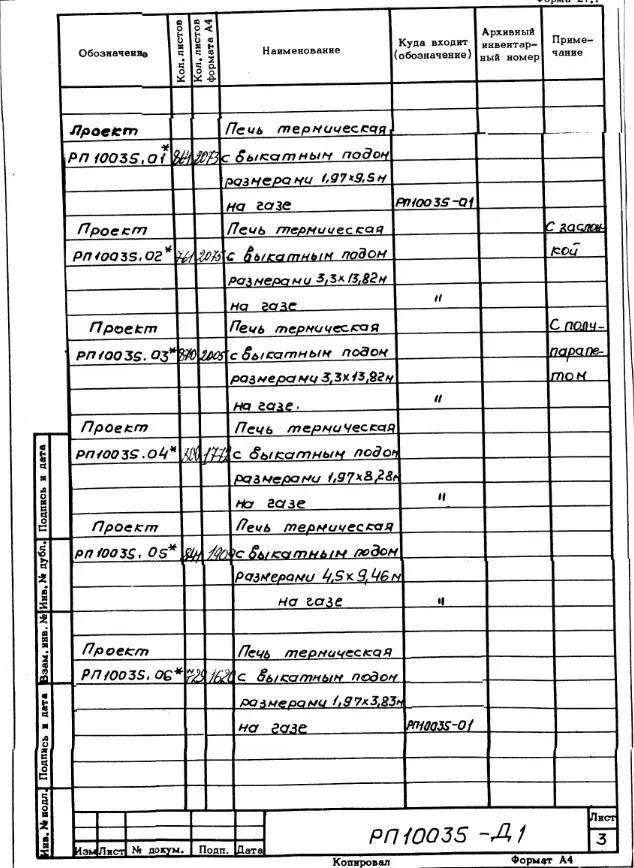 Обозначение Кол. листов Кол. листов формата А4 Наименование Куда входит (обозначение) Архивный инвентарный номер Примечание
Проект Печь термическая
РП 10035.01* 864 2073 с выкатным подом
размерами 1,97х9,5м
на газе РП10035-01
Проект Печь термическая С заслон-
РП 10035.02* 761 2075 с выкатным подом кой
размерами 3,3х13,82м
на газе "
Проект Печь термическая С полу-
РП10035.03* 870 2005 с выкатным подом парапе-
размерами 3,3х13,82м том
на газе. "
Проект Печь термическая
РП10035.04* 1772 с выкатным подом
размерами 1,97х8,28м
на газе "
Проект Печь термическая
РП10035.05* с выкатным подом
размерами 4,5х9,46м
на газе "
Проект Печь термическая
РП10035.06* 729 1620 с выкатным подом
размерами 1,97х3,83м
на газе РП10035-01
Инв. № подл. Подпись и дата Взам. инв. № Инв. № дубл. Подпись и дата
РП10035-Д1
Лист
3
Изм Лист № докум. Подп. Дата
Копировал Формат А4